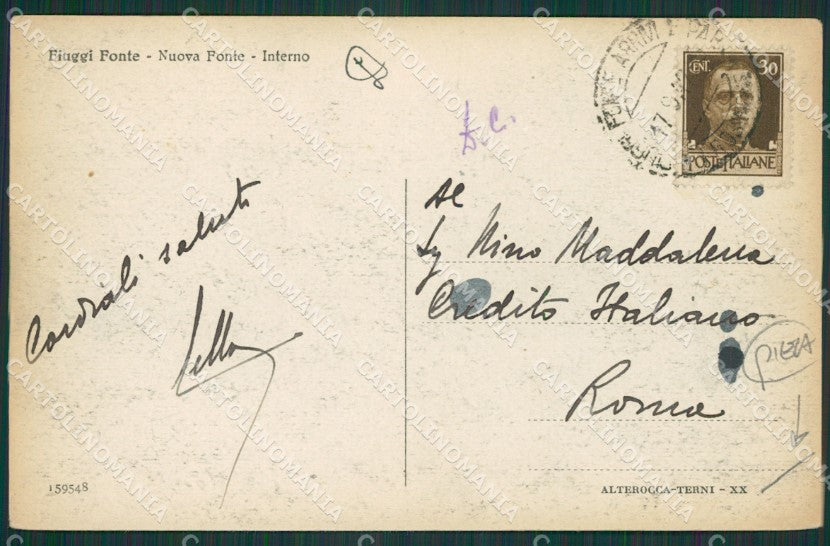 Fiuggi Fonte - Nuova Fonte - Interno
D.C.
CENT. 30
POSTE ITALIANE
Cordiali saluti
Al
Sg Nino Maddalena
Credito Italiano
Roma
PIEGA
159548
ALTEROCCA-TERNI - XX
CARTOLINOMANIA